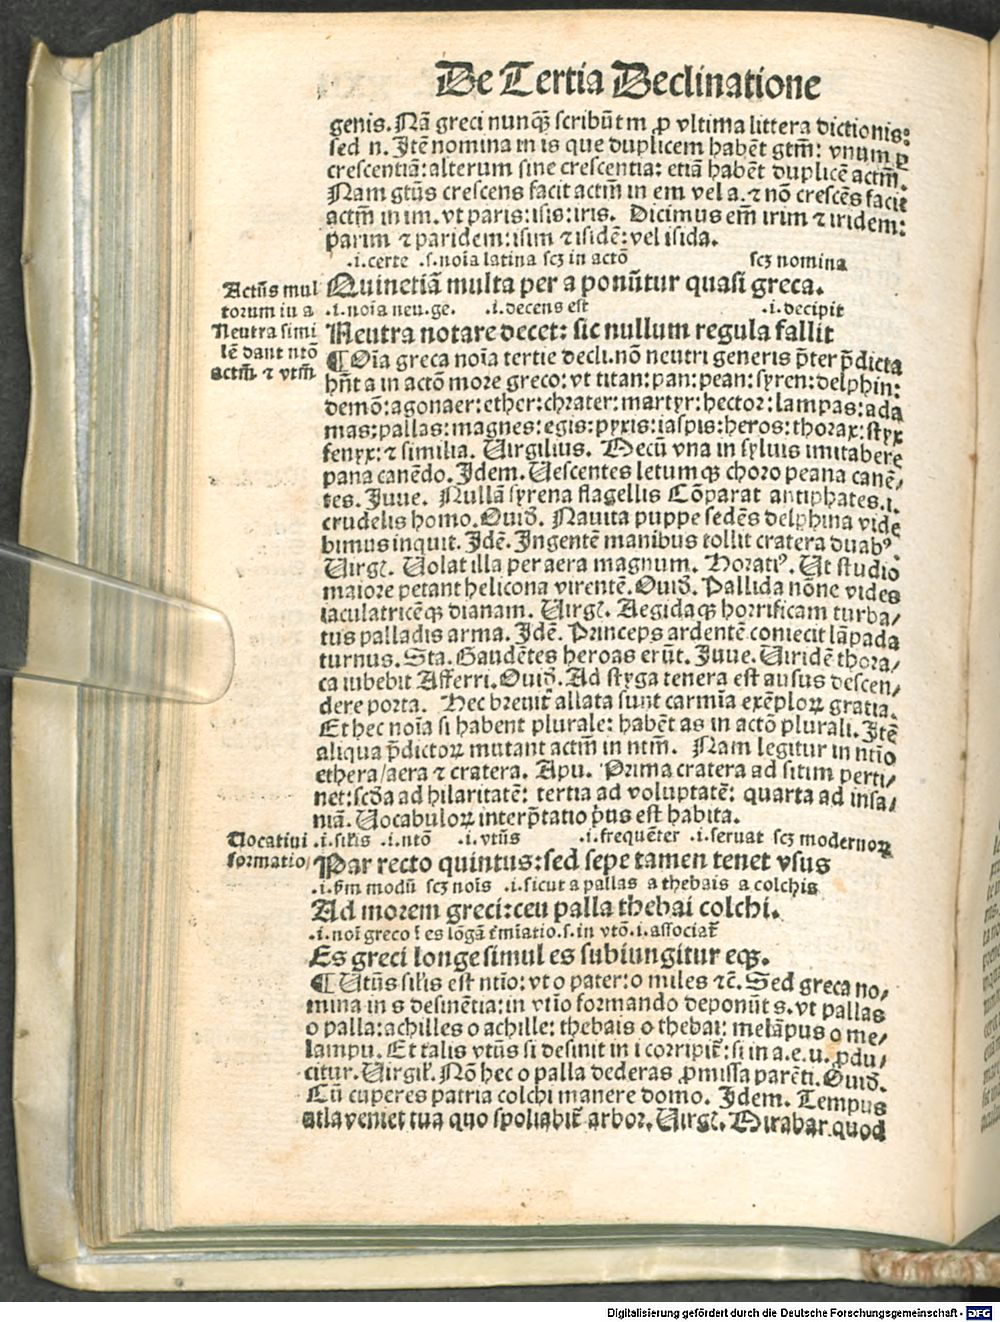 De Tertia Declinatione
genis. Nã greci nunq̃ȝ scribũt m ꝓ vltima littera dictionis:
sed n. Itẽ nomina in is que duplicem habẽt gtm̃: vnum ꝑ
crescentiã: alterum sine crescentia: etiã habẽt duplicẽ actm̃.
Nam gtũs crescens facit actm̃ in em vel a. ⁊ nõ crescẽs facit
actm̃ in im. vt paris: isis: iris. Dicimus em̃ irim ⁊ iridem:
parim ⁊ paridem: isim ⁊ isidẽ: vel isida.
.i. certe .s. noĩa latina scȝ in actõ scȝ nomina
Quinetiã multa per a ponũtur quasi greca.
Actũs mul
torum in a
.i. noĩa neu. ge. .i. decens est .i. decipit
Neutra notare decet: sic nullum regula fallit
Neutra simi
lẽ dant ntõ
actm̃ ⁊ vtm̃
¶ Oĩa greca noĩa tertie decli. nõ neutri generis p̃ter p̃dicta
hñt a in actõ more greco: vt titan: pan: pean: syren: delphin:
demõ: agon aer: ether: chrater: martyr: hector: lampas: ada
mas: pallas: magnes: egis: pyxis: iaspis: heros: thorax: styx
fenyx: ⁊ similia. Virgilius. Mecũ vna in syluis imitabere
pana canẽdo. Idem. Vescentes letumqȝ choro peana canẽ/
tes. Juue. Nullã syrena flagellis Cõparat antiphates .i.
crudelis homo. Ouid̃. Nauita puppe sedẽs delphina vide
bimus inquit. Idẽ. Ingentẽ manibus tollit cratera duabꝰ.
Virgl̃. Volat illa per aera magnum. Horatiꝰ. Ut studio
maiore petant helicona virentẽ. Ouid̃. Pallida nõne vides
iaculatricẽqȝ dianam. Virgl̃. Aegidaqȝ horrificam turba/
tus palladis arma. Idẽ. Princeps ardentẽ coniecit lãpada
turnus. Sta. Gaudẽtes heroas erũt. Juue. Viridẽ thora/
ca iubebit Afferri. Ouid̃. Ad styga tenera est ausus descen/
dere porta. Hec breuit̃ allata sunt carmĩa exẽploꝝ gratia.
Et hec noĩa si habent plurale: habẽt as in actõ plurali. Itẽ
aliqua p̃dictoꝝ mutant actm̃ in ntm̃. Nam legitur in ntĩo
ethera/aera ⁊ cratera. Apu. Prima cratera ad sitim perti/
net: scd̃a ad hilaritatẽ: tertia ad voluptatẽ: quarta ad insa/
niã. Vocabuloꝝ interp̃tatio p̃us est habita.
Vocatiui
formatio
.i. sil̃is .i. ntõ .i. vtũs .i. frequẽter .i. seruat scȝ modernoꝝ
Par recto quintus: sed sepe tamen tenet vsus
.i. ẞm modũ scȝ noĩs .i. sicut a pallas a thebais a colchis
Ad morem greci: ceu palla thebai colchi.
.i. noĩ greco ĩ es lõgã t̃mĩatio. s. in vtõ .i. associat̃
Es greci longe simul es subiungitur eqȝ.
¶ Vtũs sil̃is est ntĩo: vt o pater: o miles ⁊c̃. Sed greca no/
mina in s desinẽtia: in vtĩo formando deponũt s. vt pallas
o palla: achilles o achille: thebais o thebai: melãpus o me/
lampu. Et talis vtũs si desinit in i corripit̃: si in a. e. u. ꝓdu/
citur. Virgil̃. Nõ hec o palla dederas ꝓmissa parẽti. Ouid̃.
Cũ cuperes patria colchi manere domo. Idem. Tempus
atla veniet tua quo spoliabit̃ arbor. Virgl̃. Mirabar quod
Digitalisierung gefördert durch die Deutsche Forschungsgemeinschaft - DFG